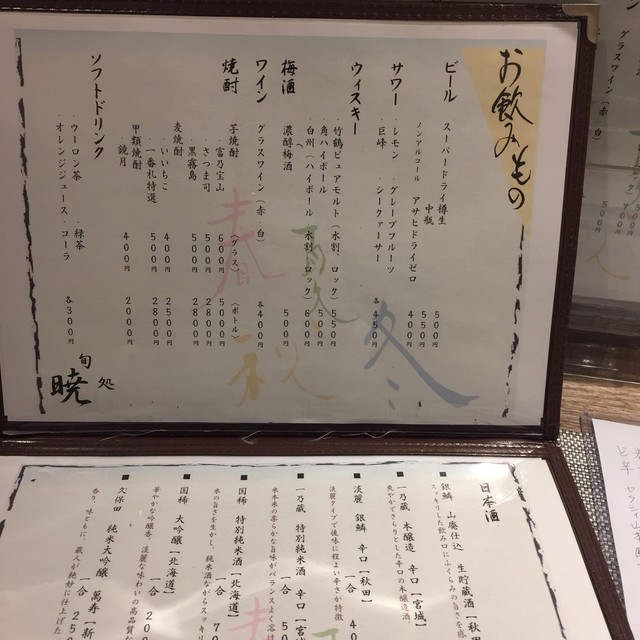 お飲みもの
ビール
スーパードライ樽生 500円
中瓶 550円
ノンアルコール アサヒドライゼロ 400円
サワー
・レモン ・グレープフルーツ
・巨峰 ・シークァーサー 各450円
ウィスキー
竹鶴ピュアモルト（水割、ロック）550円
角ハイボール 500円
白州（ハイボール、水割、ロック）600円
梅酒
濃醇梅酒 500円
ワイン
グラスワイン（赤・白） 各400円
焼酎
（グラス）（ボトル）
芋焼酎
・富乃宝山 600円 5000円
・さつま司 500円 2800円
・黒霧島 500円 2800円
麦焼酎
・いいちこ 400円 2500円
・一番札特選 500円 2800円
甲類焼酎
・鏡月 400円 2000円
ソフトドリンク
・ウーロン茶 ・緑茶
・オレンジジュース ・コーラ 各300円
春
夏
秋
冬
旬処
暁
日本酒
■ 銀鱗 山廃仕込 生貯蔵酒【秋
スッキリした飲み口にふくらみのある旨さを
■ 一乃蔵 本醸造 辛口【宮城】
爽やかでさらりとした辛口の本醸造酒
■ 淡麗 銀鱗 辛口【秋田】
一合 40
淡麗タイプで後味に程よい辛さが特徴
■ 一乃蔵 特別純米酒 辛口【宮
一合 50
米本来の柔らかな旨味がバランスよく溶け
■ 国稀 特別純米酒【北海道】
一合 70
米の旨さを生かし、純米酒ながらスッキリ
■ 国稀 大吟醸【北海道】
一合 20
華やかな吟醸香、淡麗な味わいの高品質な
■ 久保田 純米大吟醸 萬寿【新
一合 25
香り、味ともに、蔵人が絶妙に仕上げた